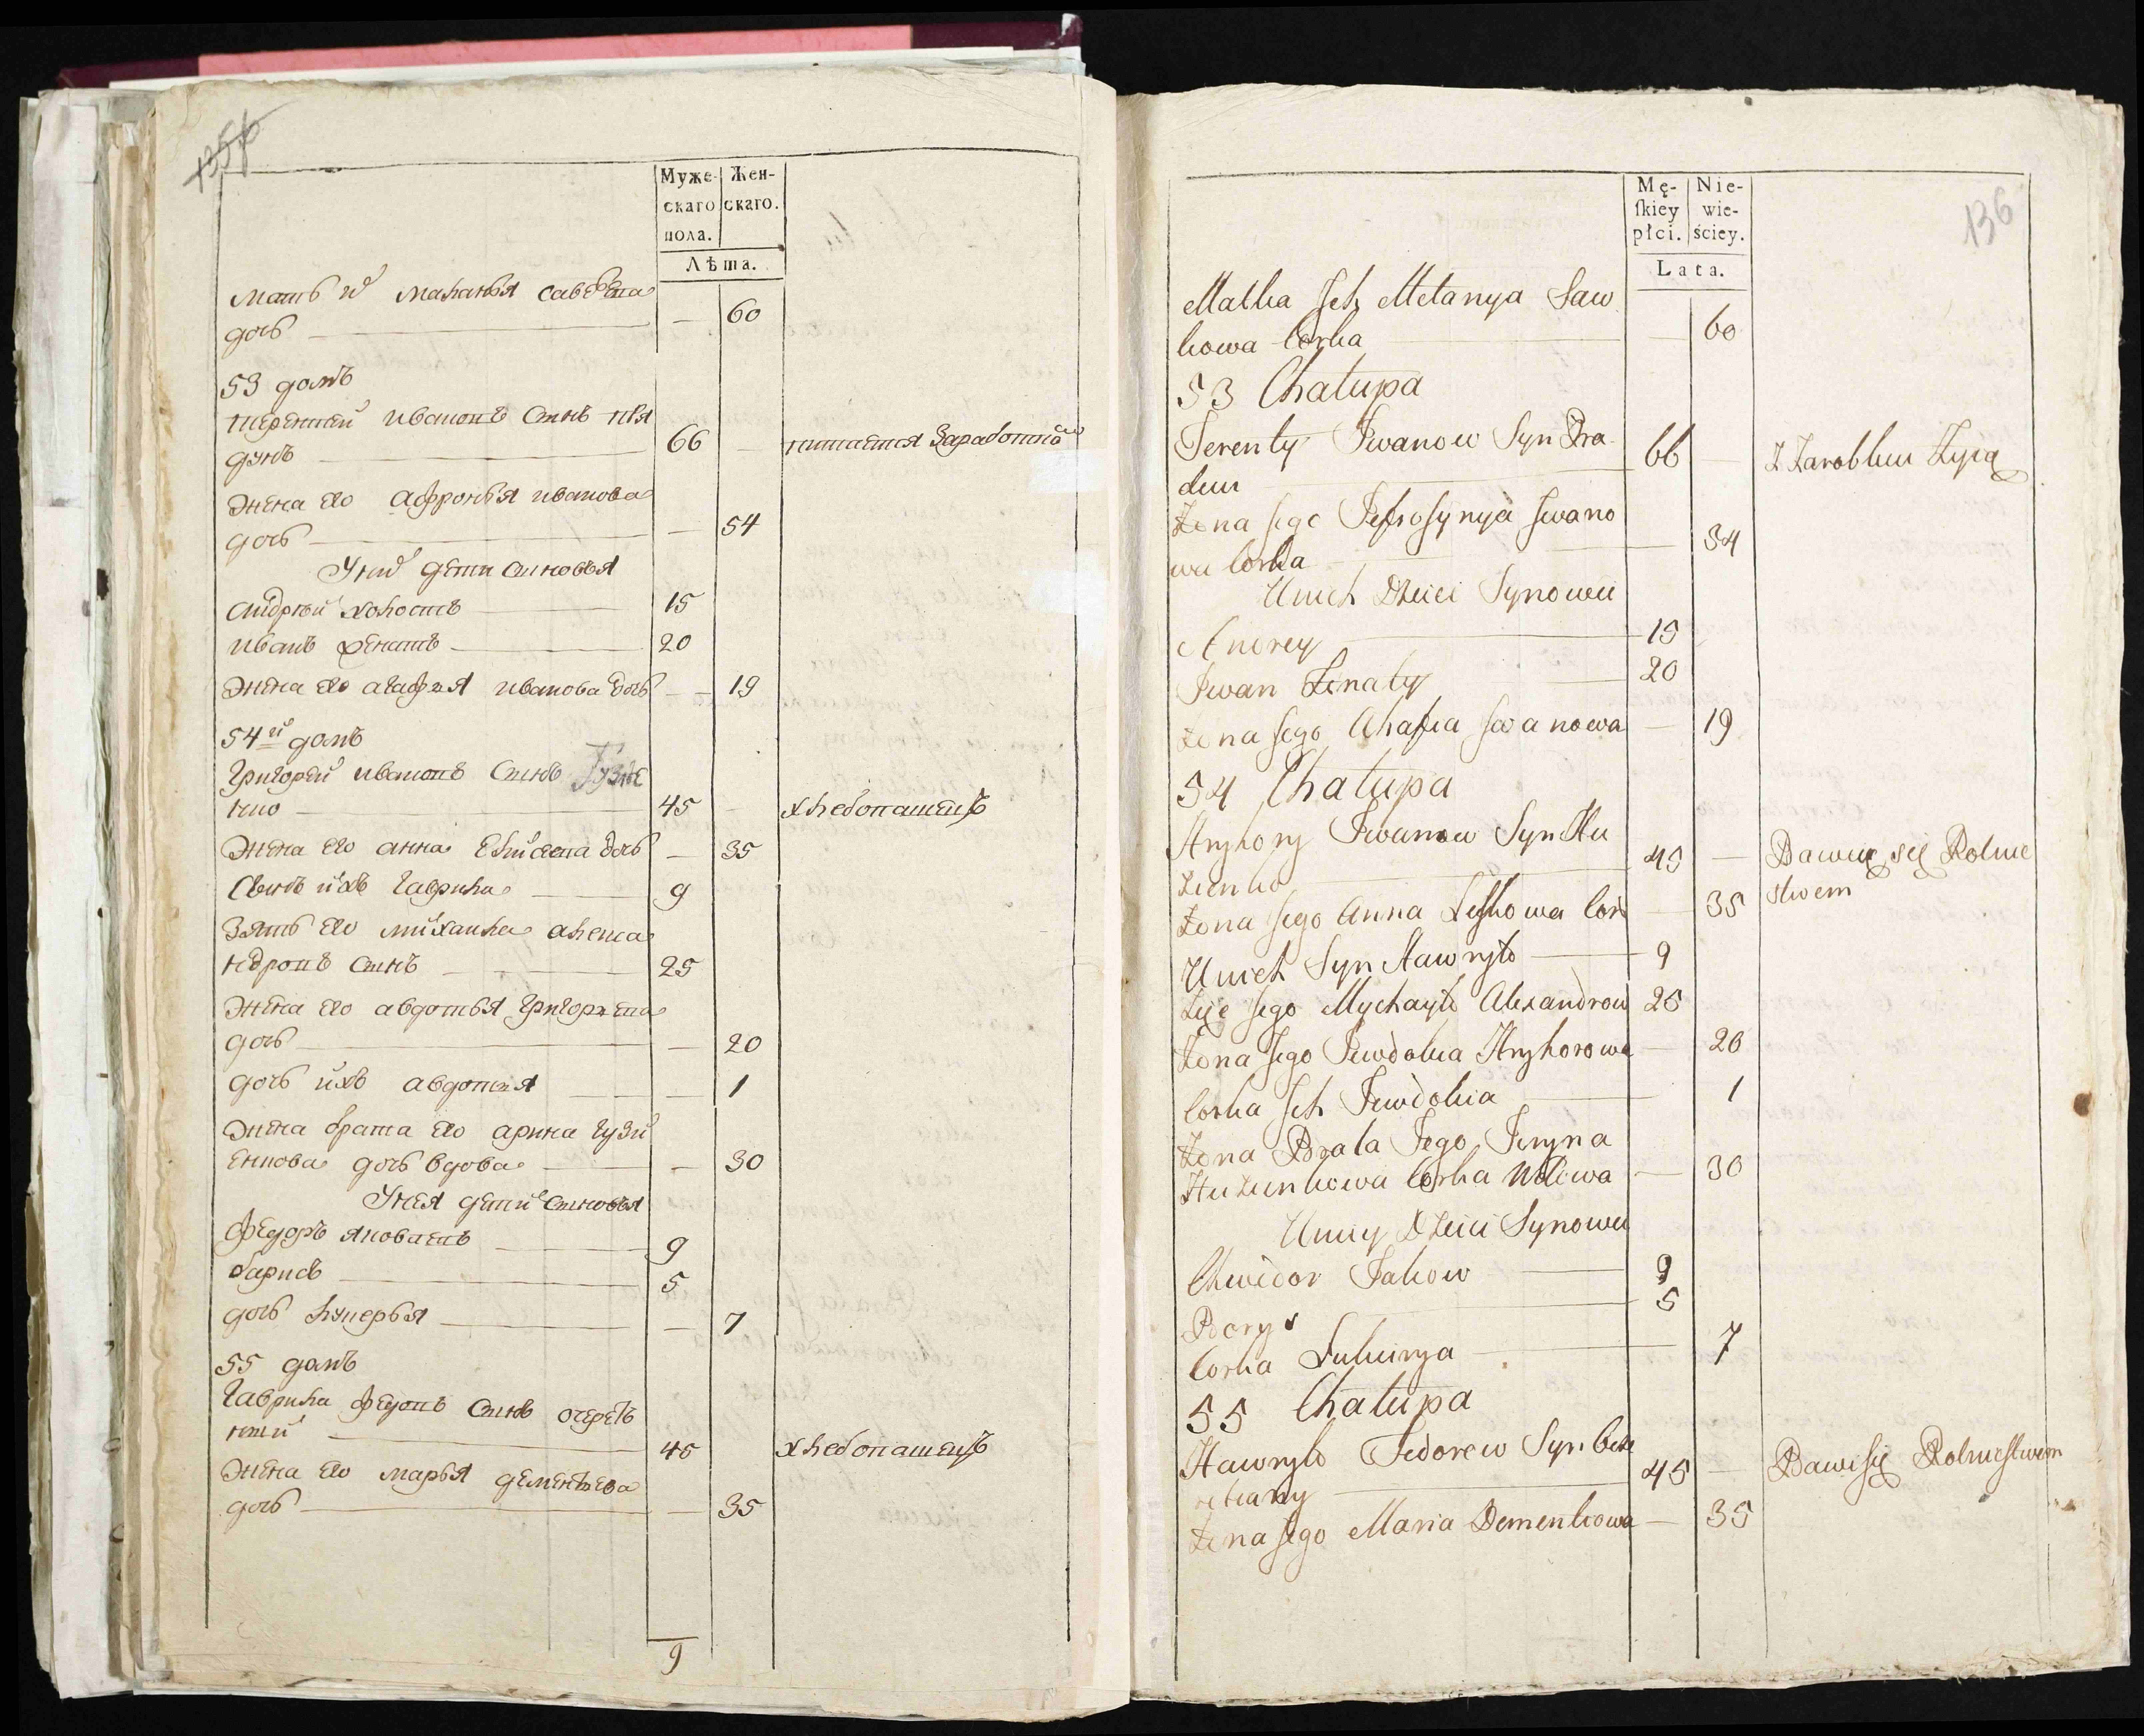 135/6
Муже-
скаго
пола.
Жен-
скаго.
Лѣта.
мать их маланья савкова
дочь — 60
53 домъ
терентей ивановъ сынъ пря
дунъ 66 — питается заработко
жена его афронья иванова
дочь — 54
У них дети сыновья
андрей холостъ 15
иванъ женатъ 20
жена его агафия иванова дочь — 19
54й домъ
григорей ивановъ сынъ Гузие
нко 45 — хлебопашецъ
жена его анна дочь — 35
Сынъ ихъ гаврила 9
Зять его михаила алекса
ндровъ сынъ 25
жена его авдотья григорьева
дочь — 20
дочь ихъ авдотия — 1
жена брата его арина гузи
енкова дочь вдова — 30
У нея дети сыновья
федоръ яковлевъ 9
барисъ 5
дочь лукерья — 7
55 домъ
гаврила федовъ сынъ очерет
ный 45 хлебопашецъ
жена его марья дементьева
дочь — 35
9
136
Mę-
ſkiey
płci.
Nie-
wie-
ściey.
Lata.
Matka Jch Melanya Saw
kowa Corka — 60
53 Chałupa
Terenty Iwanow Syn Pra
dun 66 — Z Zarobku Zyią
Zona Jego Jefrosynya Iwano
wa Corka — 54
U nich Dzieci Synowie
Andrey 15
Iwan Zonaty 20
Zona Jego Ahafia Iwanowa — 19
54 Chałupa
Hryhory Iwanow Syn Hu
zienko 45 — Bawię się Rolnic
stwem
Zona Jego Anna Leskowa Cor — 35
U nich Syn Hawryło 9
Zięć Jego Mychayło Alexandrow 25
Zona Jego Jewdokia Hryhorowa — 20
Corka Jch Jewdokia 1
Zona Brata Jego Jryna
Huzienkowa Corka Wdowa — 30
U niey Dzieci Synowie
Chwedor Jakow 9
Borys 5
Corka Lukierya 7
55 Chałupa
Hawryło Fedorow Syn Ocze
retiany 45 — Bawi się Rolnictwem
Zona Jego Maria Dementiowa — 35